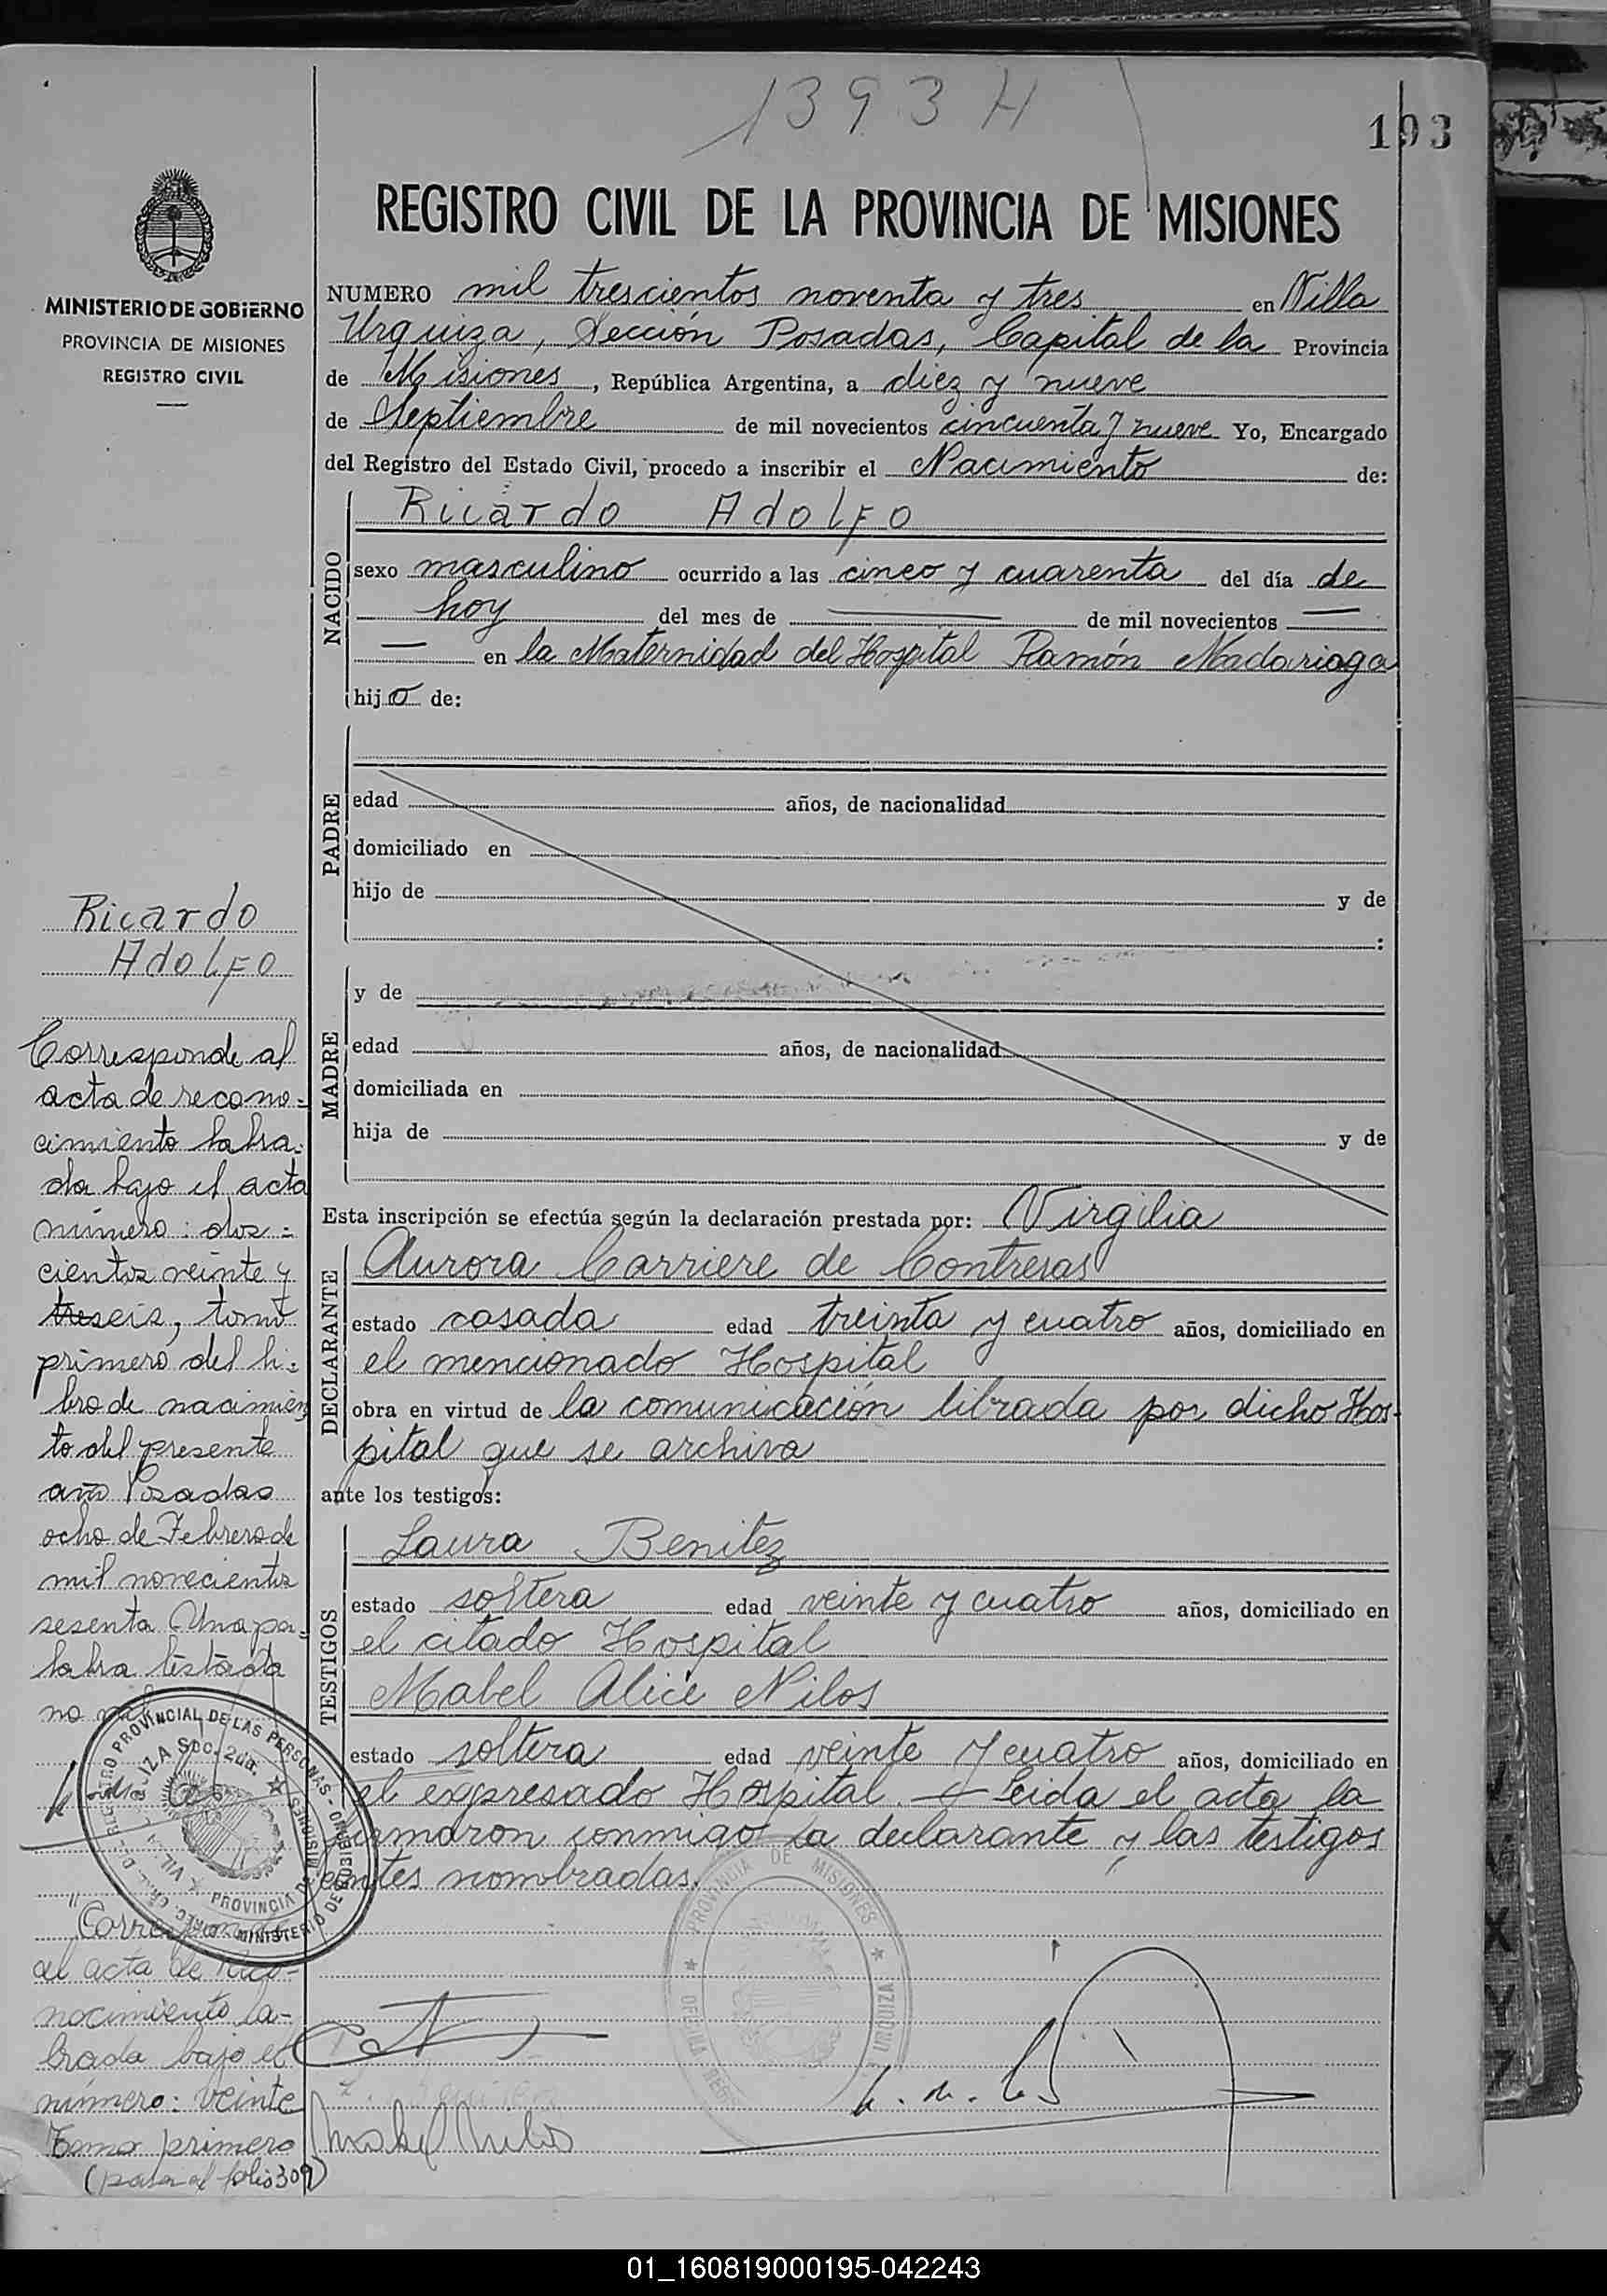 1393 H
193
REGISTRO CIVIL DE LA PROVINCIA DE MISIONES
MINISTERIO DE GOBIERNO
PROVINCIA DE MISIONES
REGISTRO CIVIL
NUMERO mil trescientos noventa y tres en Villa
Urquiza, Sección Posadas, Capital de la Provincia
de Misiones, República Argentina, a diez y nueve
de Septiembre de mil novecientos cincuenta y nueve Yo, Encargado
del Registro del Estado Civil, procedo a inscribir el Nacimiento de:
NACIDO
Ricardo Adolfo
sexo masculino ocurrido a las cinco y cuarenta del día de
hoy del mes de — de mil novecientos —
— en la Maternidad del Hospital Ramón Madariaga
hijo de:
PADRE
edad años, de nacionalidad
domiciliado en
hijo de y de
:
MADRE
y de
edad años, de nacionalidad
domiciliada en
hija de y de
Esta inscripción se efectúa según la declaración prestada por: Virgilia
DECLARANTE
Aurora Carriere de Contreras
estado casada edad treinta y cuatro años, domiciliado en
el mencionado Hospital
obra en virtud de la comunicación librada por dicho Hos-
pital que se archiva
ante los testigos:
TESTIGOS
Laura Benitez
estado soltera edad veinte y cuatro años, domiciliado en
el citado Hospital
Mabel Alice Nilos
estado soltera edad veinte y cuatro años, domiciliado en
el expresado Hospital. — Leida el acta la
firmaron conmigo la declarante y las testigos
antes nombradas.
Ricardo
Adolfo
Corresponde al
acta de recono=
cimiento labra=
da bajo el acta
número: dos=
cientos veinte y
treseis, tomo
primero del li=
bro de nacimien
to del presente
año Posadas
ocho de Febrero de
mil novecientos
sesenta Una pa=
labra testada
no
REGISTRO PROVINCIAL DE LAS PERSONAS - MINISTERIO DE GOBIERNO
PROVINCIA DE MISIONES
Corresponde
al acta de reco-
nocimiento la-
brada bajo el
número: veinte
Tomo primero
(pasa al folio 309)
PROVINCIA DE MISIONES
URQUIZA
OFICINA
Mabel Nilos
01_160819000195-042243